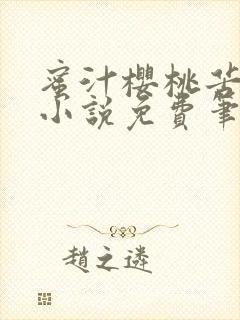 蜜汁櫻桃苦
小說免費筆
趙之遴